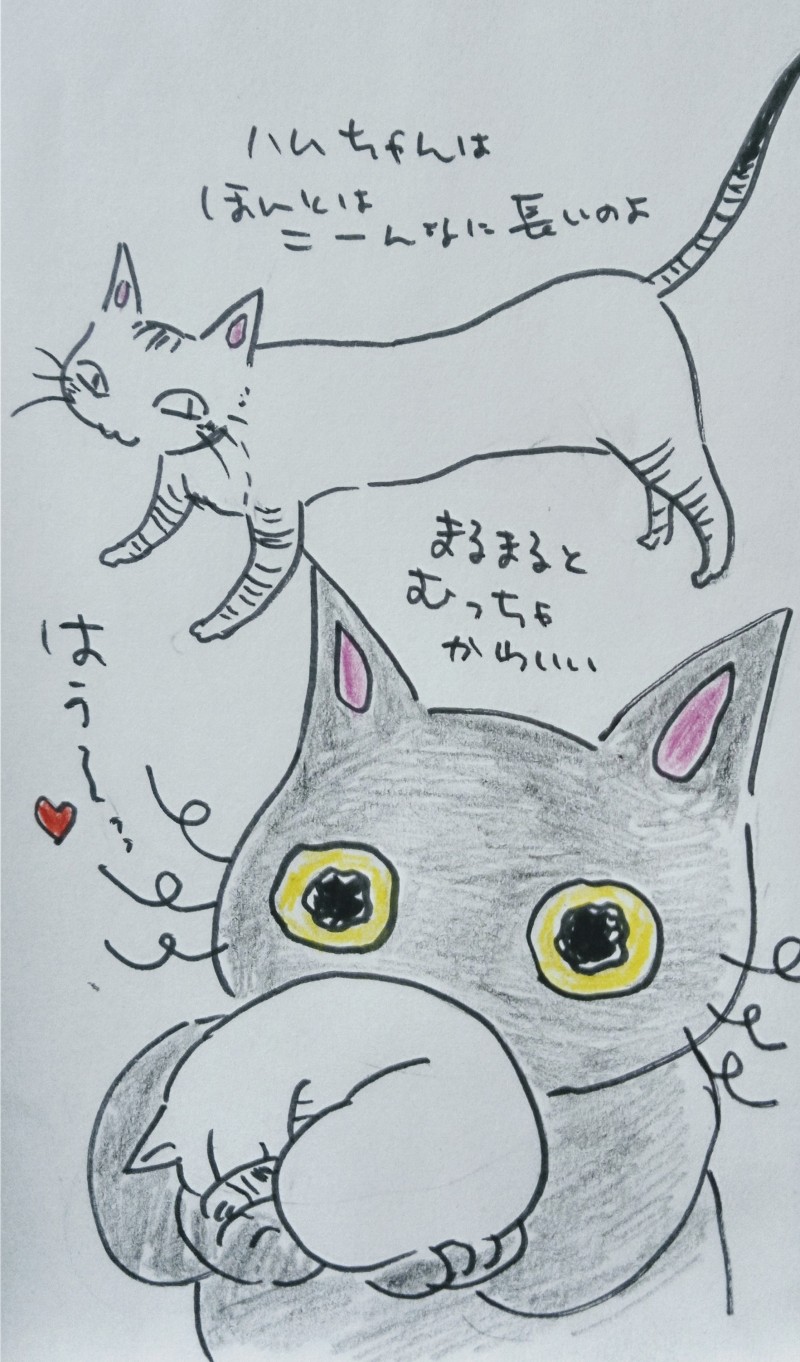 ハムちゃんは
ほんとは
こーんなに長いのよ
まるまると
むっちゃ
かわいい
はう〜…